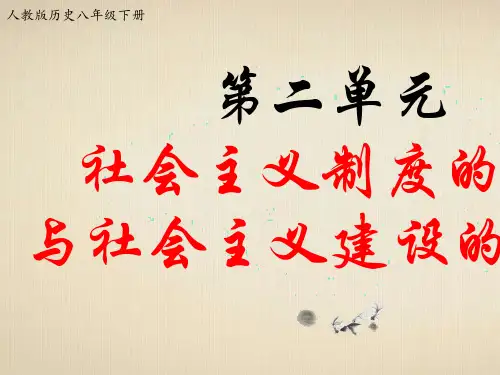 人教版历史八年级下册
第二单元
社会主义制度的
与社会主义建设的